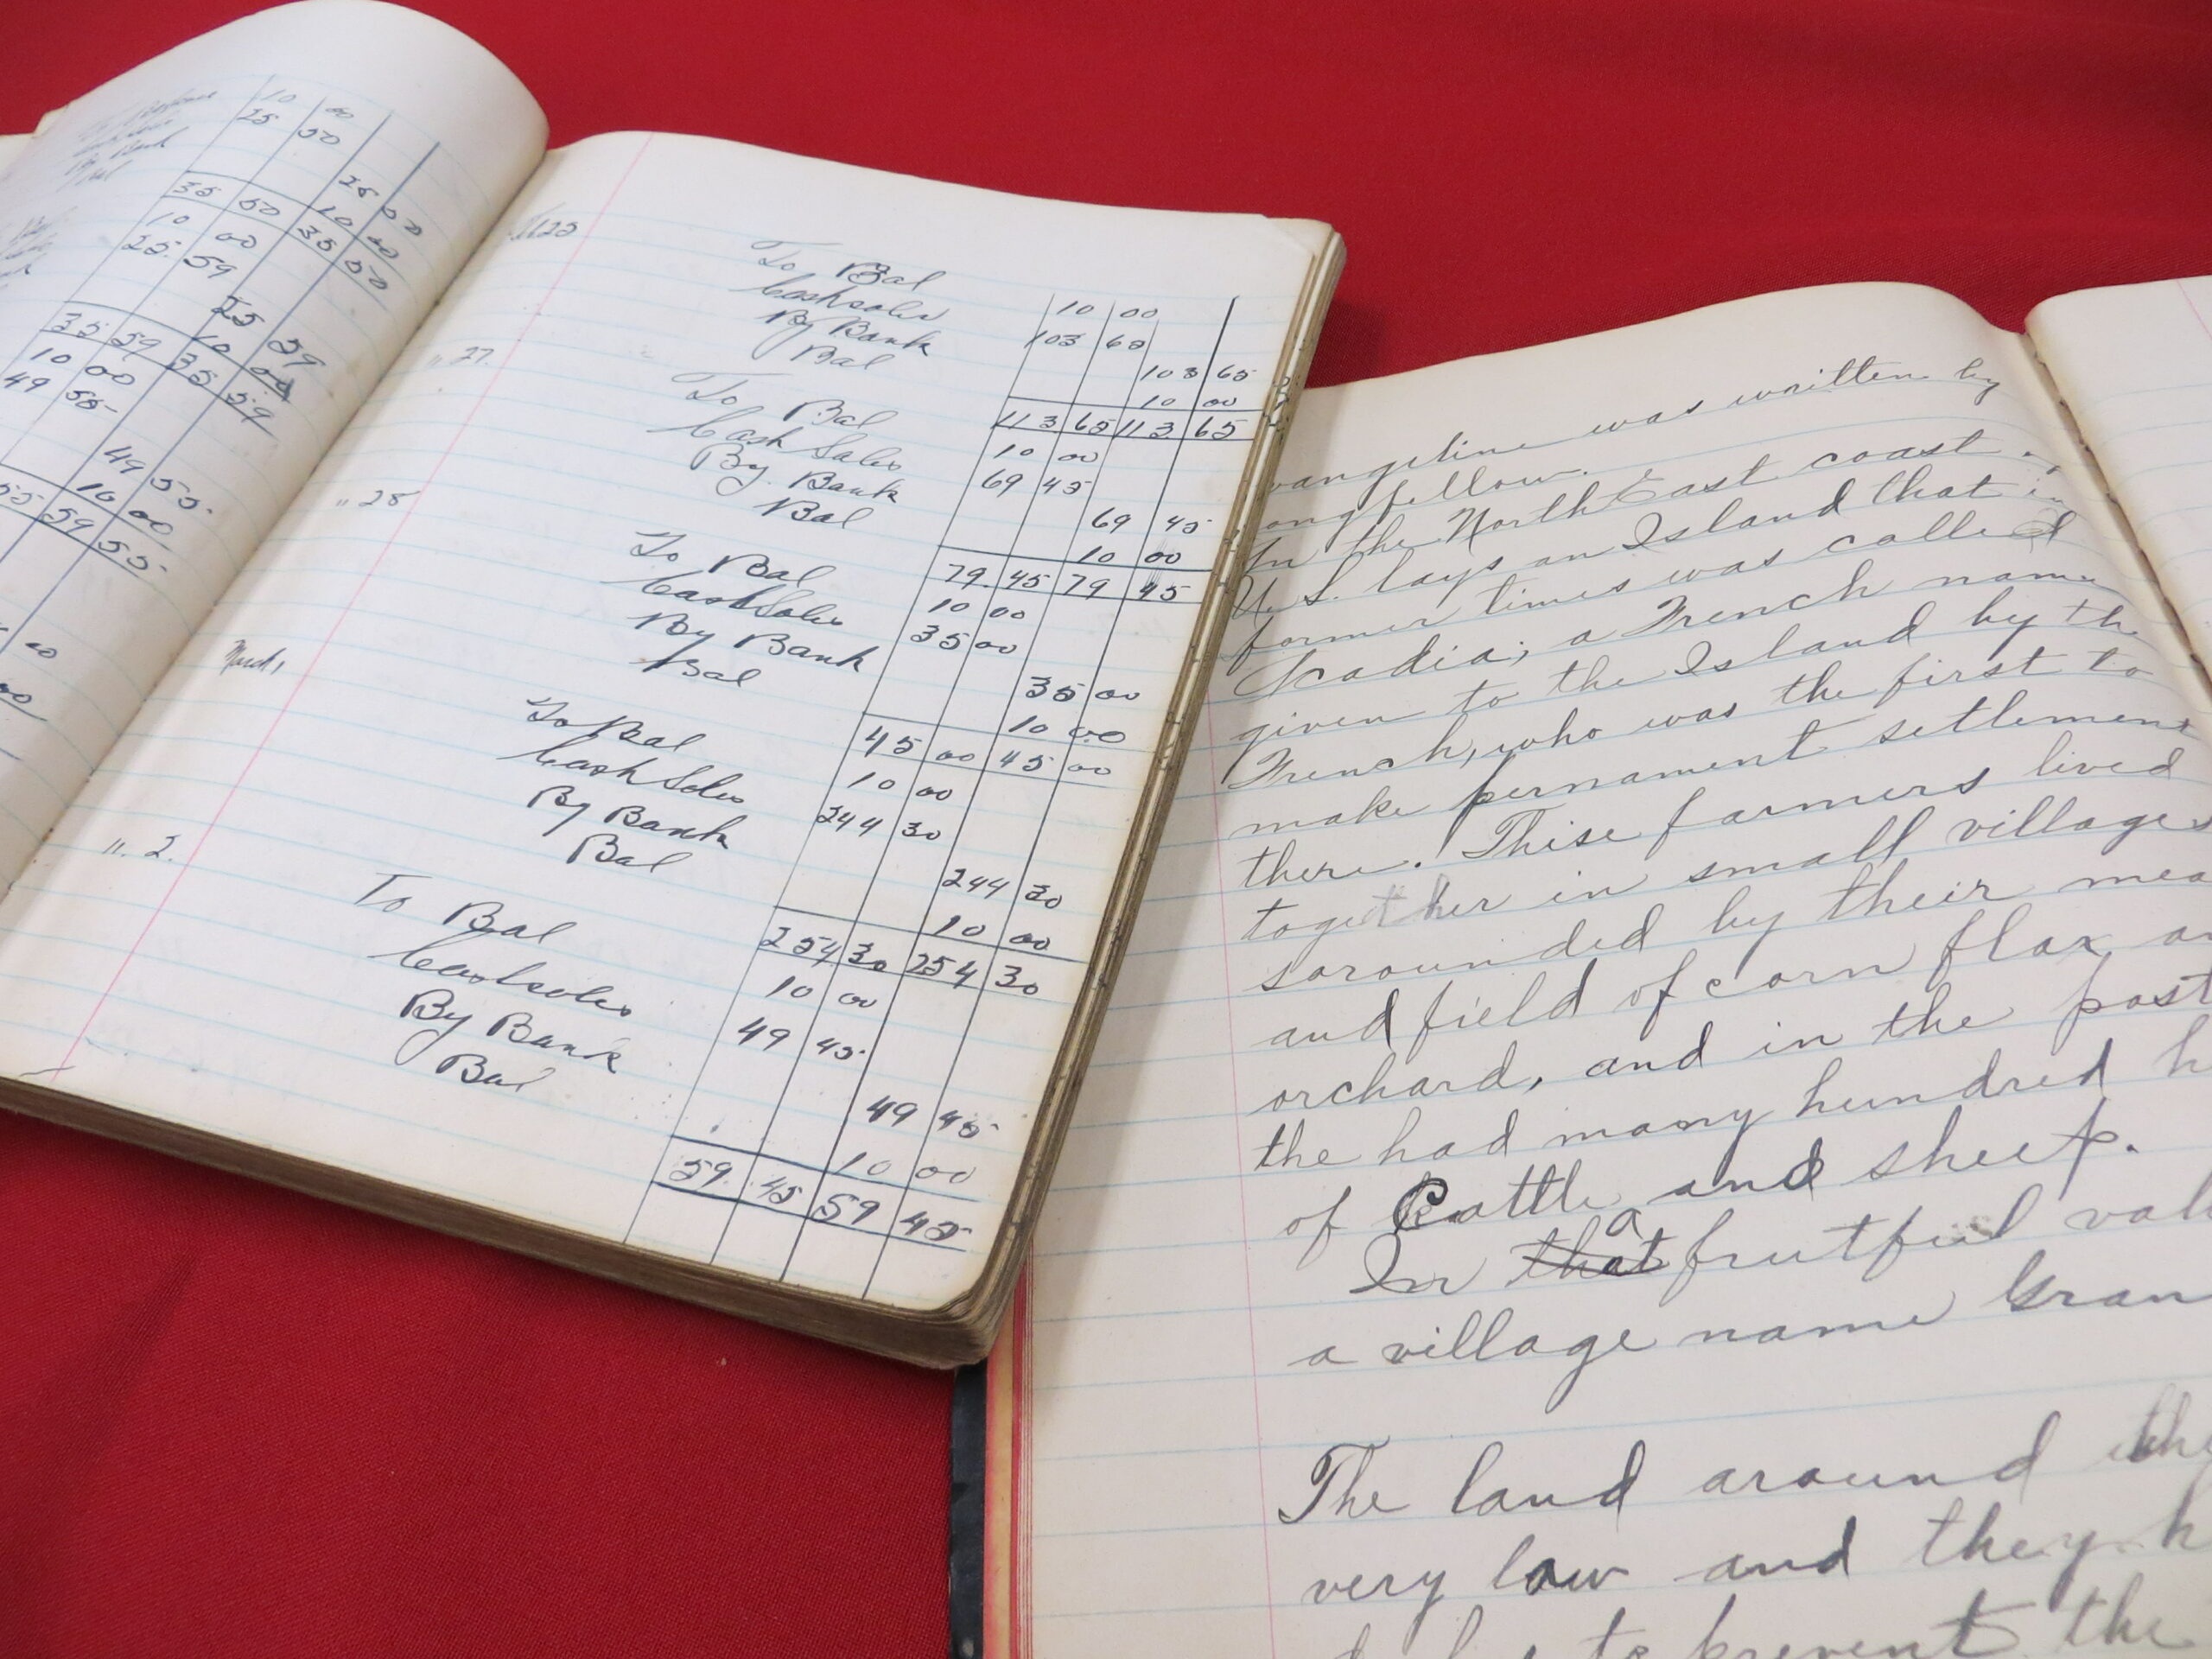 10 00
25 50
25 50
10 00
35 50 35 50
10 00
25 59
25 59
10 00
35 59 35 59
10 00
49 55
49 55
10 00
59 55
To Bal 10 00
Cash sales 103 65
By Bank 103 65
Bal 10 00
113 65 113 65
" 27. To Bal 10 00
Cash Sales 69 45
By Bank 69 45
Bal 10 00
79 45 79 45
" 28 To Bal 10 00
Cash Sales 35 00
By Bank 35 00
Bal 10 00
45 00 45 00
March 1 To Bal 10 00
Cash Sales 244 30
By Bank 244 30
Bal 10 00
254 30 254 30
" 2. To Bal 10 00
Cash sales 49 45
By Bank 49 45
Bal 10 00
59 45 59 45
vangeline was written by
ongfellow.
In the North East coast
U.S. lays an Island that in
former times was called
Acadia; a French name
given to the Island by the
French, who was the first to
make pernament settlement
there. Thise farmers lived
together in small villages
sorounded by their mea
and field of corn flax an
orchard, and in the past
the had many hundred h
of Cattle and sheep.
In that a frutful vall
a village name Gran
The land around the
very low and they h
to prevent the